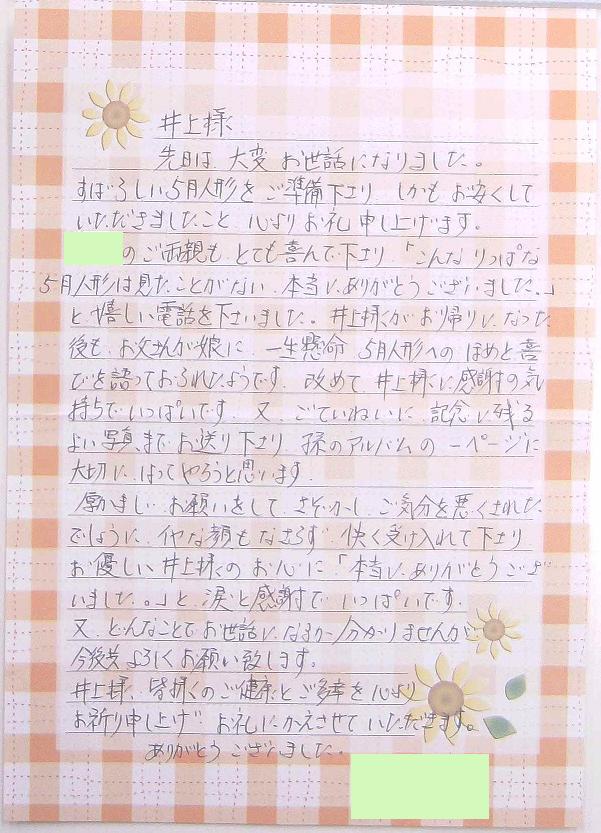 井上様
先日は、大変お世話になりました。
すばらしい5月人形をご準備下さり しかもお安くして
いただきましたこと、心よりお礼申し上げます。
のご両親も とても喜んで下さり、「こんなりっぱな
5月人形は見たことがない、本当にありがとうございました。」
と嬉しい電話を下さいました。井上様がお帰りになった
後も、お父さんが娘に、一生懸命 5月人形へのほめと喜
びを語っておられたようです。改めて、井上様に感謝の気
持ちでいっぱいです。又、ごていねいに、記念に残る
よい写真までお送り下さり、孫のアルバムの一ページに
大切に、はってやろうと思います。
厚かましいお願いをして さぞかし ご気分を悪くされた
でしょうに、イヤな顔もなさらず 快く受け入れて下さり
お優しい井上様のお心に「本当に、ありがとうござ
いました。」と、涙と感謝で いっぱいです。
又、どんなことでお世話になるか分かりませんが
今後共よろしくお願い致します。
井上様、皆様のご健康とご多幸を心より
お祈り申し上げ お礼にかえさせていただきます。
ありがとうございました。